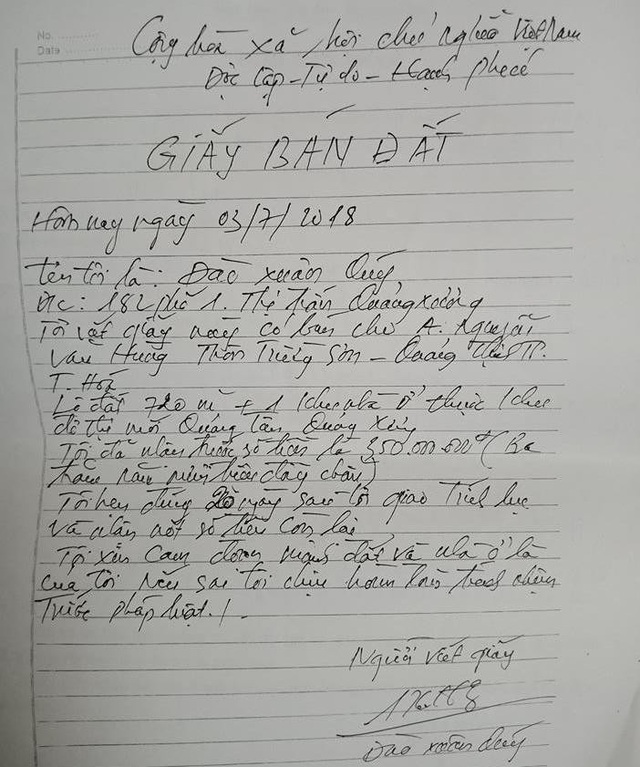 No.
Date
Cộng hòa xã hội chủ nghĩa Việt Nam
Độc lập - Tự do - Hạnh phúc
GIẤY BÁN ĐẤT
Hôm nay ngày 03/7/2018
Tên tôi là: Đào Xuân Quý
Đ/c: 182 phố 1. Thị trấn Quảng Xương
Tôi viết giấy này có bán cho A. Nguyễn
Văn Hùng Thôn Trường Sơn - Quảng Thịnh TP.
T. Hoá
Lô đất 720 m + 1 nhà ở thuộc khu
đô thị mới Quảng Tân Quảng Xương
Tôi đã nhận trước số tiền là 350.000.000đ (Ba
trăm năm mươi triệu đồng chẵn)
Tôi hẹn đúng 20 ngày sau tôi giao trích lục
và nhận nốt số tiền còn lại
Tôi xin cam đoan mảnh đất và nhà ở là
của tôi nếu sai tôi chịu hoàn toàn trách nhiệm
trước pháp luật./.
Người viết giấy
Đào Xuân Quý